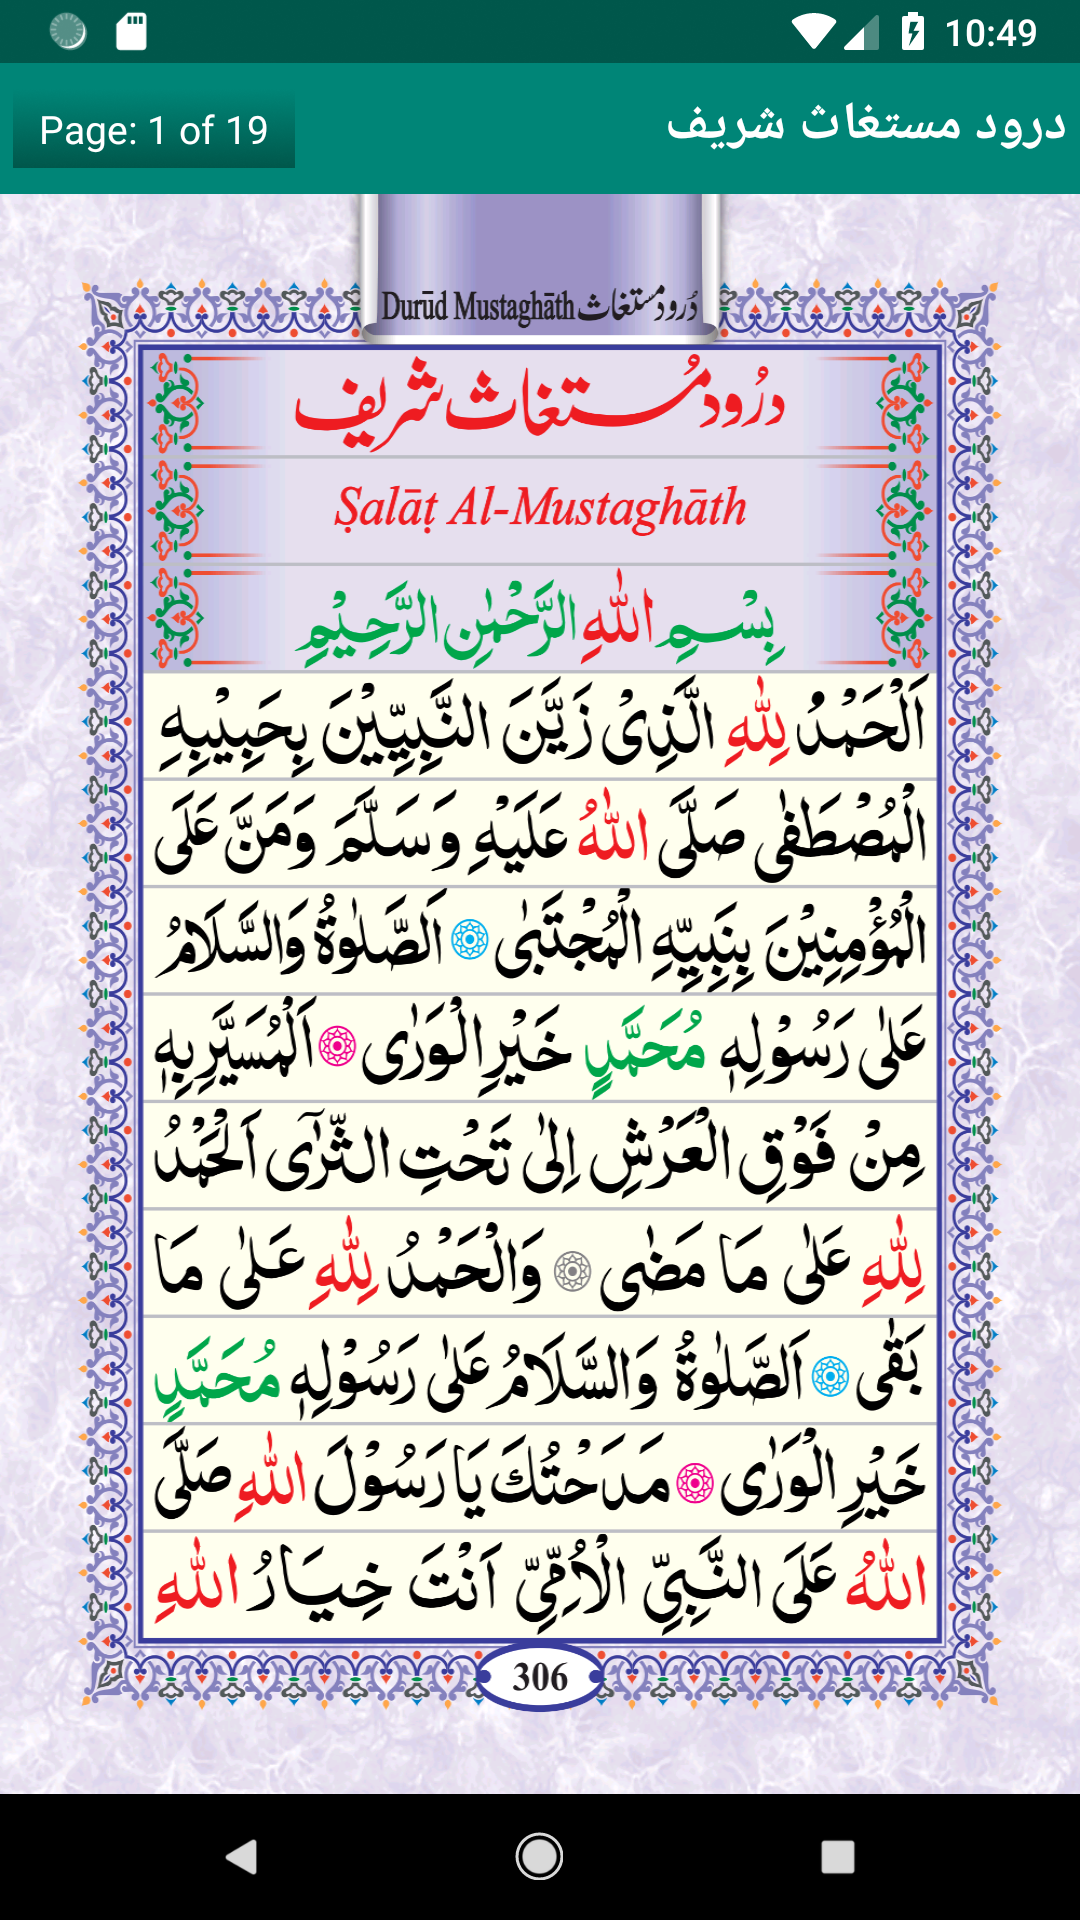 10:49
Page: 1 of 19
درود مستغاث شریف
Durūd Mustaghāth دُرود مستغاث
درُود مُستغاث شریف
Ṣalāṭ Al-Mustaghāth
بِسْمِ اللّٰهِ الرَّحْمٰنِ الرَّحِيْمِ
اَلْحَمْدُ لِلّٰهِ الَّذِىْ زَيَّنَ النَّبِيِّيْنَ بِحَبِيْبِهِ
الْمُصْطَفٰى صَلَّى اللّٰهُ عَلَيْهِ وَسَلَّمَ وَمَنَّ عَلَى
الْمُؤْمِنِيْنَ بِنَبِيِّهِ الْمُجْتَبٰى ۞ اَلصَّلٰوةُ وَالسَّلَامُ
عَلٰى رَسُوْلِهٖ مُحَمَّدٍ خَيْرِ الْوَرٰى ۞ اَلْمُسَيَّرِ بِهٖ
مِنْ فَوْقِ الْعَرْشِ اِلٰى تَحْتِ الثَّرٰٓى اَلْحَمْدُ
لِلّٰهِ عَلٰى مَا مَضٰى ۞ وَالْحَمْدُ لِلّٰهِ عَلٰى مَا
بَقٰى ۞ اَلصَّلٰوةُ وَالسَّلَامُ عَلٰى رَسُوْلِهٖ مُحَمَّدٍ
خَيْرِ الْوَرٰى ۞ مَدَحْتُكَ يَا رَسُوْلَ اللّٰهِ صَلَّى
اللّٰهُ عَلَى النَّبِيِّ الْاُمِّيِّ اَنْتَ خِيَارُ اللّٰهِ
306